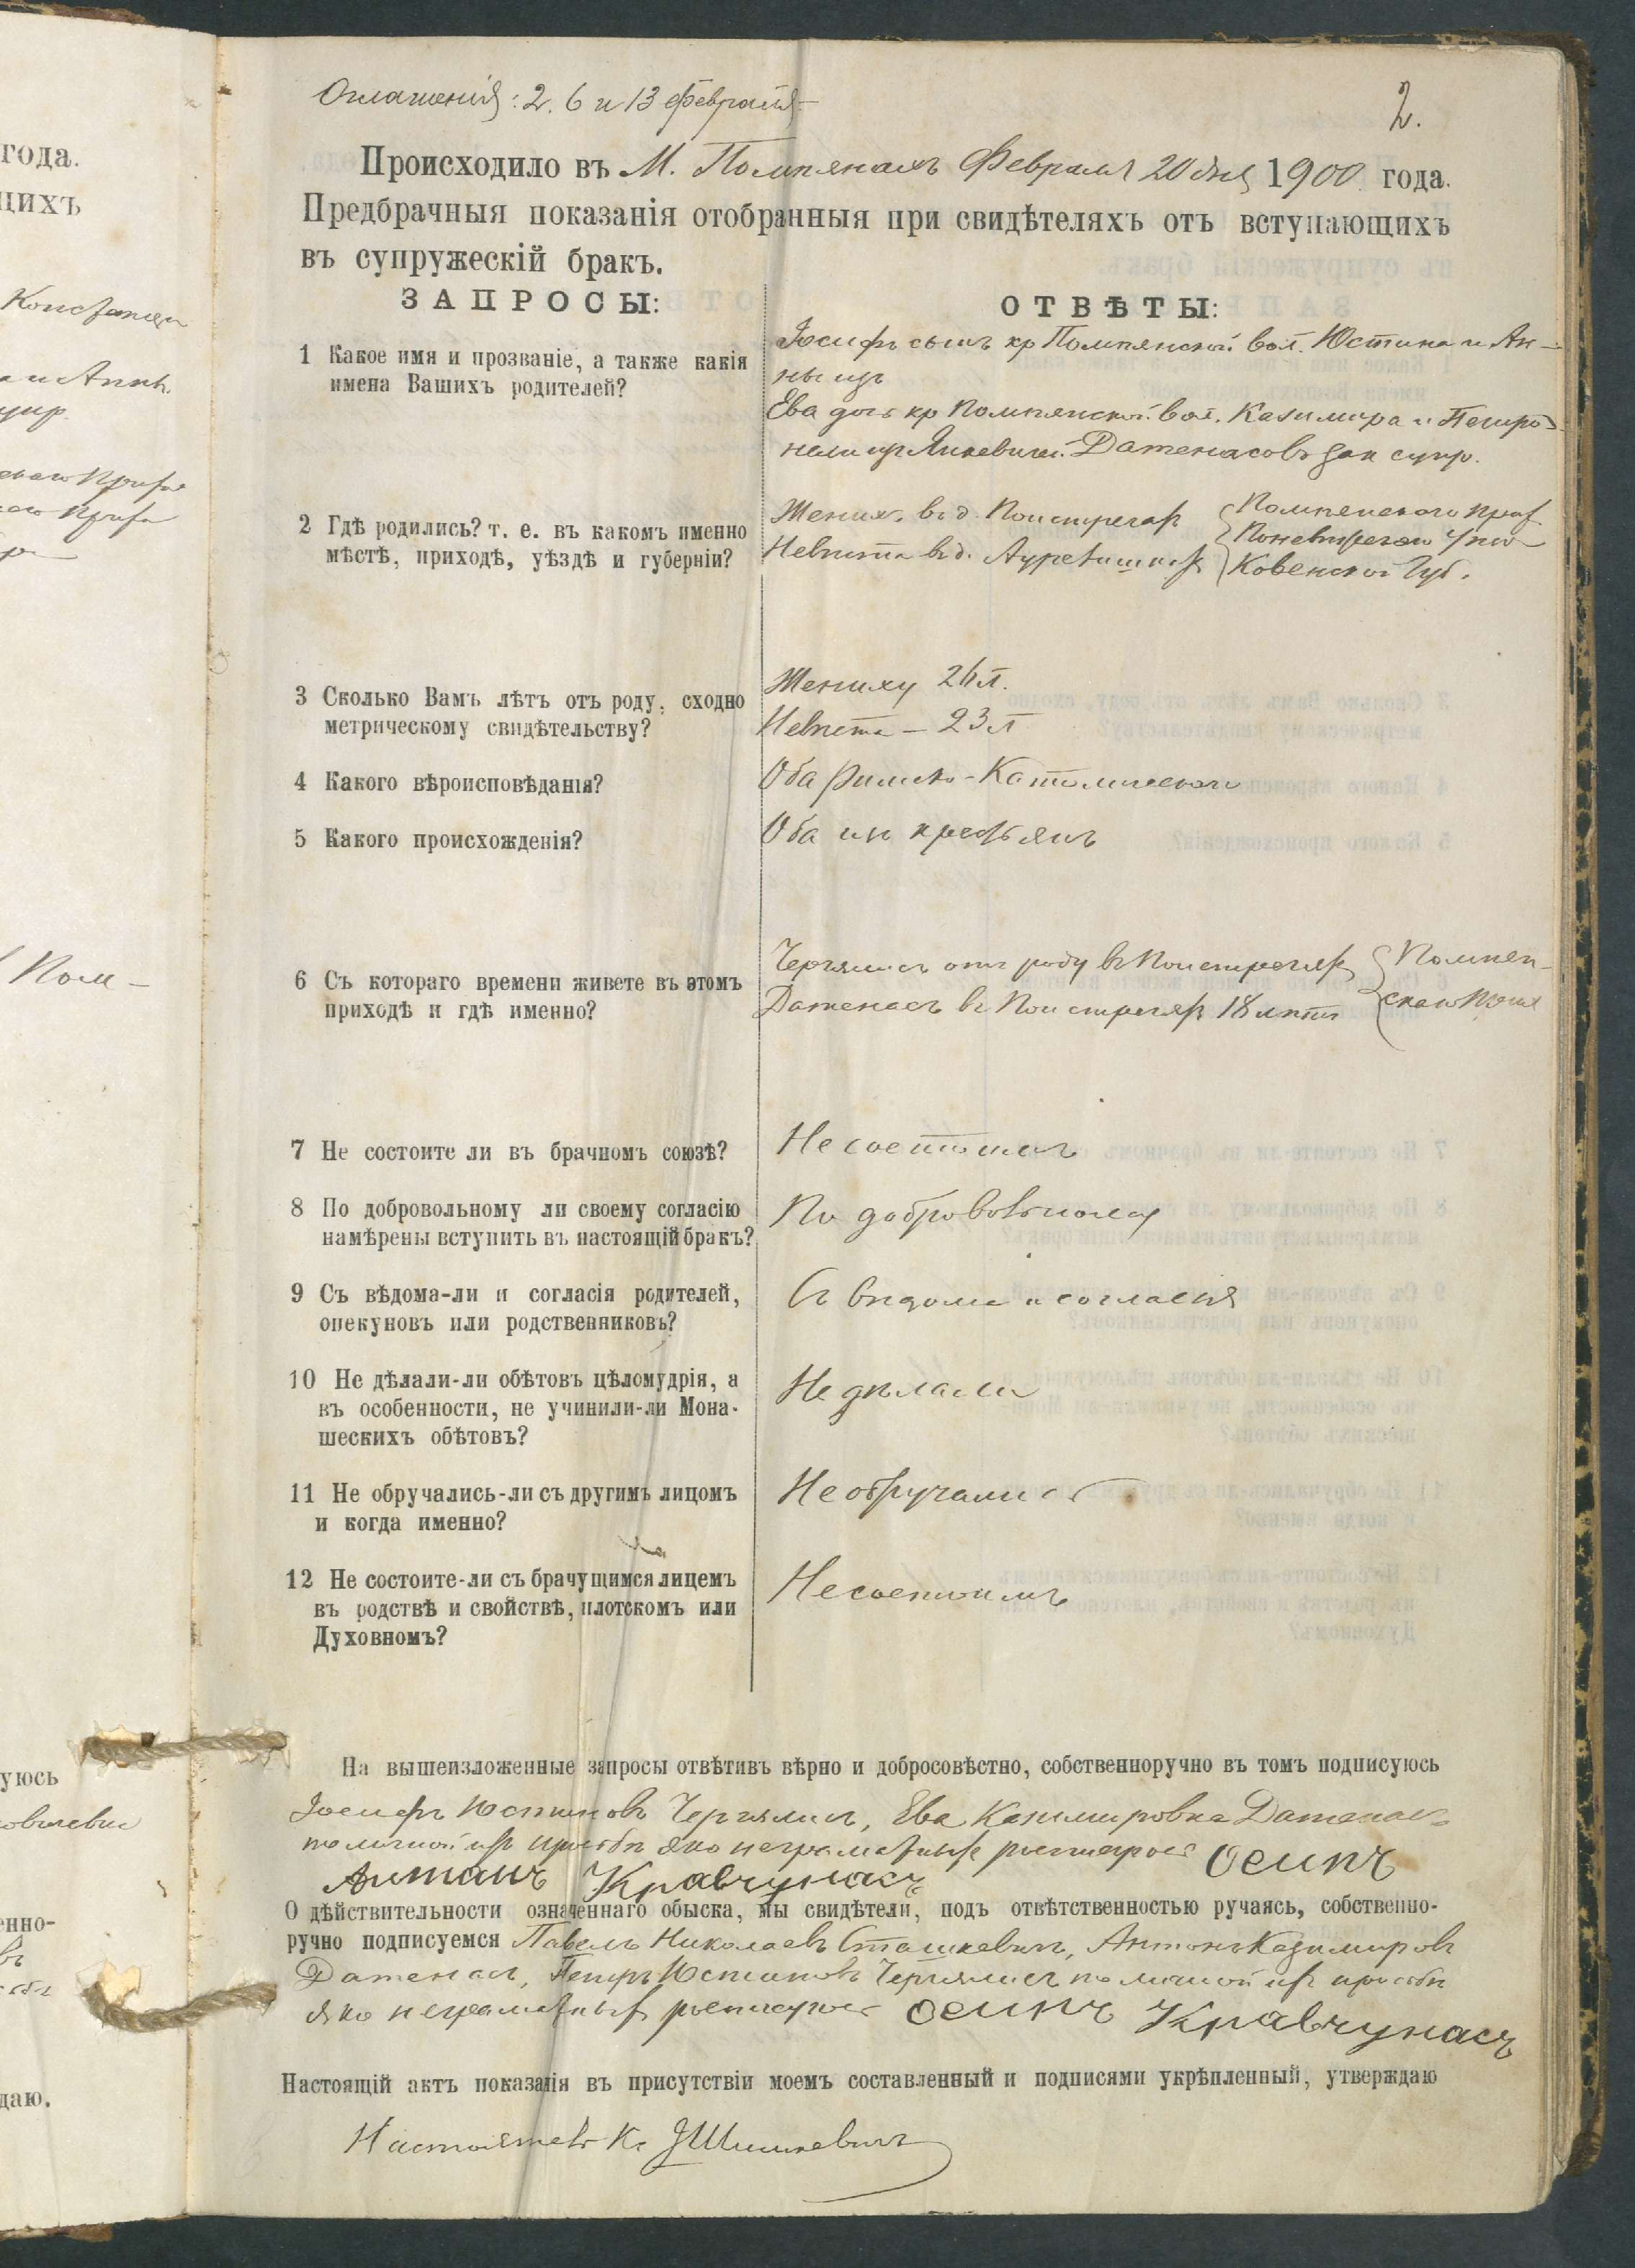 года.
щихъ
Оглашенія: 2. 6 и 13 февраля
2.
Происходило въ М. Помпянахъ Февраля 20 дня 1900 года.
Предбрачныя показанія отобранныя при свидѣтеляхъ отъ вступающихъ
въ супружескій бракъ.
ЗАПРОСЫ:
1 Какое имя и прозваніе, а также какія
имена Вашихъ родителей?
2 Гдѣ родились? т. е. въ какомъ именно
мѣстѣ, приходѣ, уѣздѣ и губерніи?
3 Сколько Вамъ лѣтъ отъ роду, сходно
метрическому свидѣтельству?
4 Какого вѣроисповѣданія?
5 Какого происхожденія?
6 Съ котораго времени живете въ этомъ
приходѣ и гдѣ именно?
7 Не состоите ли въ брачномъ союзѣ?
8 По добровольному ли своему согласію
намѣрены вступить въ настоящій бракъ?
9 Съ вѣдома-ли и согласія родителей,
опекуновъ или родственниковъ?
10 Не дѣлали-ли обѣтовъ цѣломудрія, а
въ особенности, не учинили-ли Мона-
шескихъ обѣтовъ?
11 Не обручались-ли съ другимъ лицомъ
и когда именно?
12 Не состоите-ли съ брачущимся лицемъ
въ родствѣ и свойствѣ, плотскомъ или
Духовномъ?
ОТВѢТЫ:
Іосифъ сынъ кр Помпянской вол. Юстина и Ан-
ны изъ
Ева дочь кр Помпянской вол. Казимира и Петро-
нели Янкевичей Датенасовъ зак супр.
Жених. въ д. Поистрегахъ { Помпянского прих
Невѣста въ д. { Поневѣжского уѣзда
Ковенской Губ.
Жениху 26 л.
Невѣста – 23 л
Оба Римско-Католического
Оба изъ крестьянъ
отъ роду въ { Помпян-
Датенасъ въ 18 лѣтъ { скаго
Не состоимъ
По добровольному
Съ вѣдома и согласія
Не дѣлали
Не обручались
Не состоимъ
На вышеизложенные запросы отвѣтивъ вѣрно и добросовѣстно, собственноручно въ томъ подписуюсь
Іосифъ Юстиновъ Ева Казимировна Датенасъ
по личной ихъ просьбѣ яко неграматныхъ росписуюсь Осипъ
Антанъ Кравчунасъ
О дѣйствительности означеннаго обыска, мы свидѣтели, подъ отвѣтственностью ручаясь, собственно-
ручно подписуемся Павелъ Николаевъ Сташкевичъ, Антонъ Казимировъ
Датенасъ, Петръ Юстиновъ по личной ихъ просьбѣ
яко неграматныхъ росписуюсь Осипъ Кравчунасъ
Настоящій актъ показанія въ присутствіи моемъ составленный и подписями укрѣпленный, утверждаю
Настоятель Кс